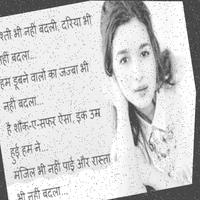 श्ती भी नहीं बदली, दरिया भी
नहीं बदला...
हम डूबने वालों का जज्बा भी
नहीं बदला...
है शौक-ए-सफर ऐसा, इक उम्र
हुई हम ने...
मंजिल भी नहीं पाई और रास्ता
भी नहीं बदला...